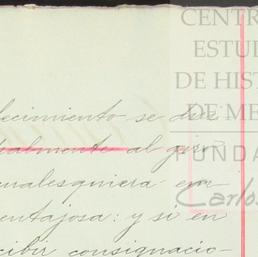 CENTR
ESTU
DE HIST
DE ME
FUNDA
Carlos
lecimiento se de
ialmente al giro
cualesquiera em-
entajosa: y si en
cibir consignacio-